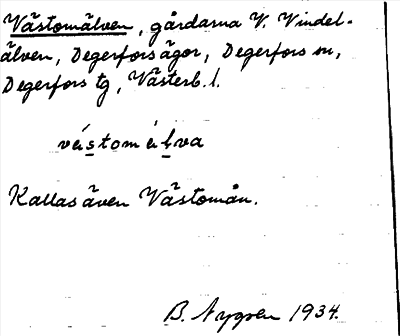 Västomälven, gårdarna V. Vindel-
älven, Degerforsägor, Degerfors sn,
Degerfors tg, Västerb. l.
Kallas även Västomån.
B. Nygren 1934.